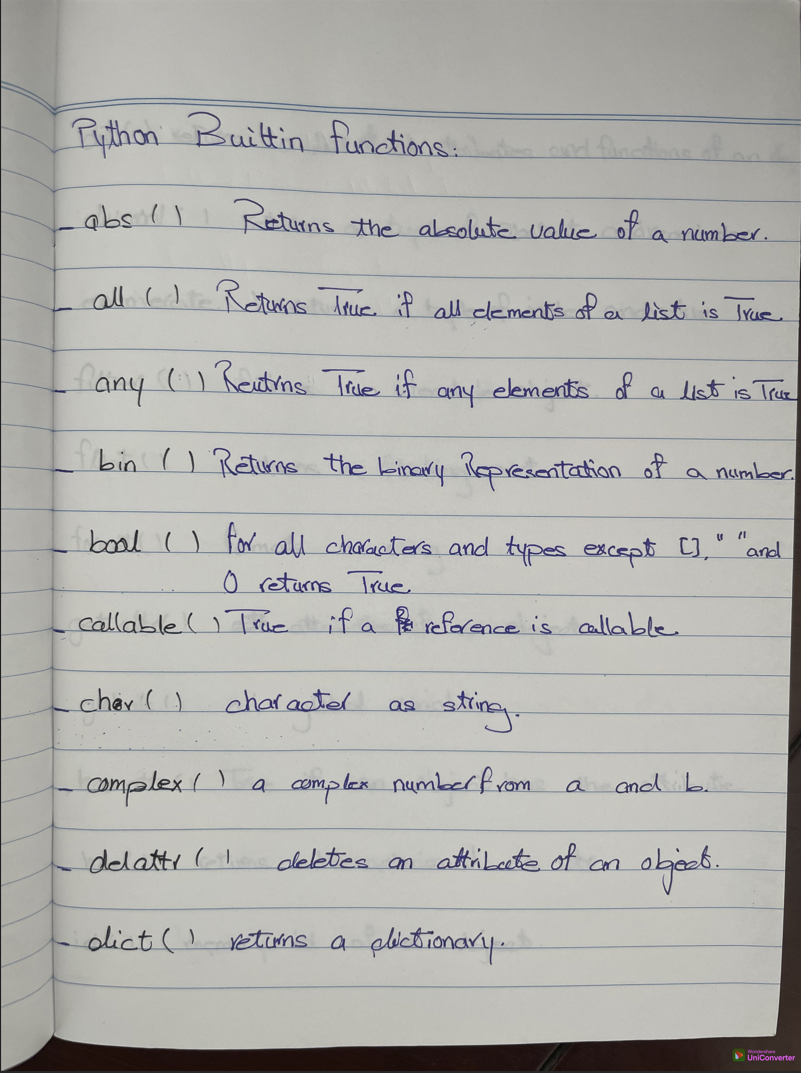 Python Builtin functions:
- abs ( ) Returns the absolute value of a number.
- all ( ) Returns True if all elements of a list is True
- any ( ) Reutrns True if any elements of a list is True
- bin ( ) Returns the binary Representation of a number.
- bool ( ) for all characters and types except [], " " and
0 returns True
- callable ( ) True if a reference is callable.
- char ( ) character as string.
- complex ( ) a complex number from a and b.
- delattr ( ) deletes an attribute of an object.
- dict ( ) returns a dictionary.
Wondershare
UniConverter